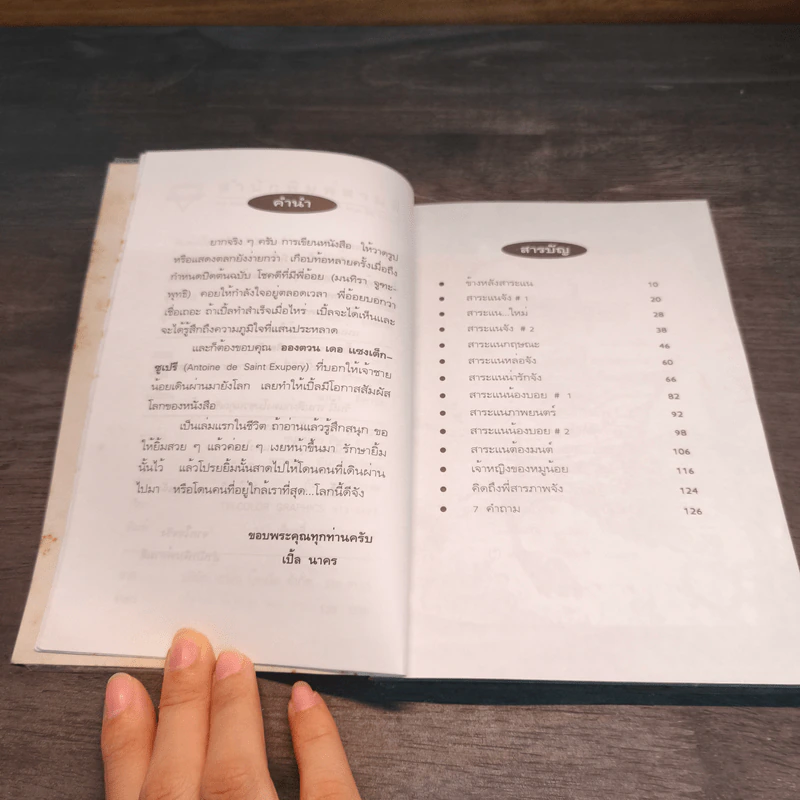 คำนำ
ยากจริง ๆ ครับ การเขียนหนังสือ ให้วาดรูป
หรือแสดงตลกยังง่ายกว่า เกือบท้อหลายครั้งเมื่อถึง
กำหนดปิดต้นฉบับ โชคดีที่มีพี่อ้อย (มนทิรา จูฑะ-
พุทธิ) คอยให้กำลังใจอยู่ตลอดเวลา พี่อ้อยบอกว่า
เชื่อเถอะ ถ้าเปิ้ลทำสำเร็จเมื่อไหร่ เปิ้ลจะได้เห็นและ
จะได้รู้สึกถึงความภูมิใจที่แสนประหลาด
และก็ต้องขอบคุณ อองตวน เดอ แซงเต็ก-
ซูเปรี (Antoine de Saint Exupery) ที่บอกให้เจ้าชาย
น้อยเดินผ่านมายังโลก เลยทำให้เปิ้ลมีโอกาสสัมผัส
โลกของหนังสือ
เป็นเล่มแรกในชีวิต ถ้าอ่านแล้วรู้สึกสนุก ขอ
ให้ยิ้มสวย ๆ แล้วค่อย ๆ เงยหน้าขึ้นมา รักษายิ้ม
นั้นไว้ แล้วโปรยยิ้มนั้นสาดไปให้โดนคนที่เดินผ่าน
ไปมา หรือโดนคนที่อยู่ใกล้เราที่สุด...โลกนี้ดีจัง
ขอบพระคุณทุกท่านครับ
เปิ้ล นาคร
สารบัญ
ข้างหลังสาระแน 10
สาระแนจัง # 1 20
สาระแน...ใหม่ 28
สาระแนจัง # 2 38
สาระแนกฤษณะ 46
สาระแนหล่อจัง 60
สาระแนน่ารักจัง 66
สาระแนน้องบอย # 1 82
สาระแนภาพยนตร์ 92
สาระแนน้องบอย # 2 98
สาระแนต้องมนต์ 106
เจ้าหญิงของหมูน้อย 116
คิดถึงพี่สารภาพจัง 124
7 คำถาม 126